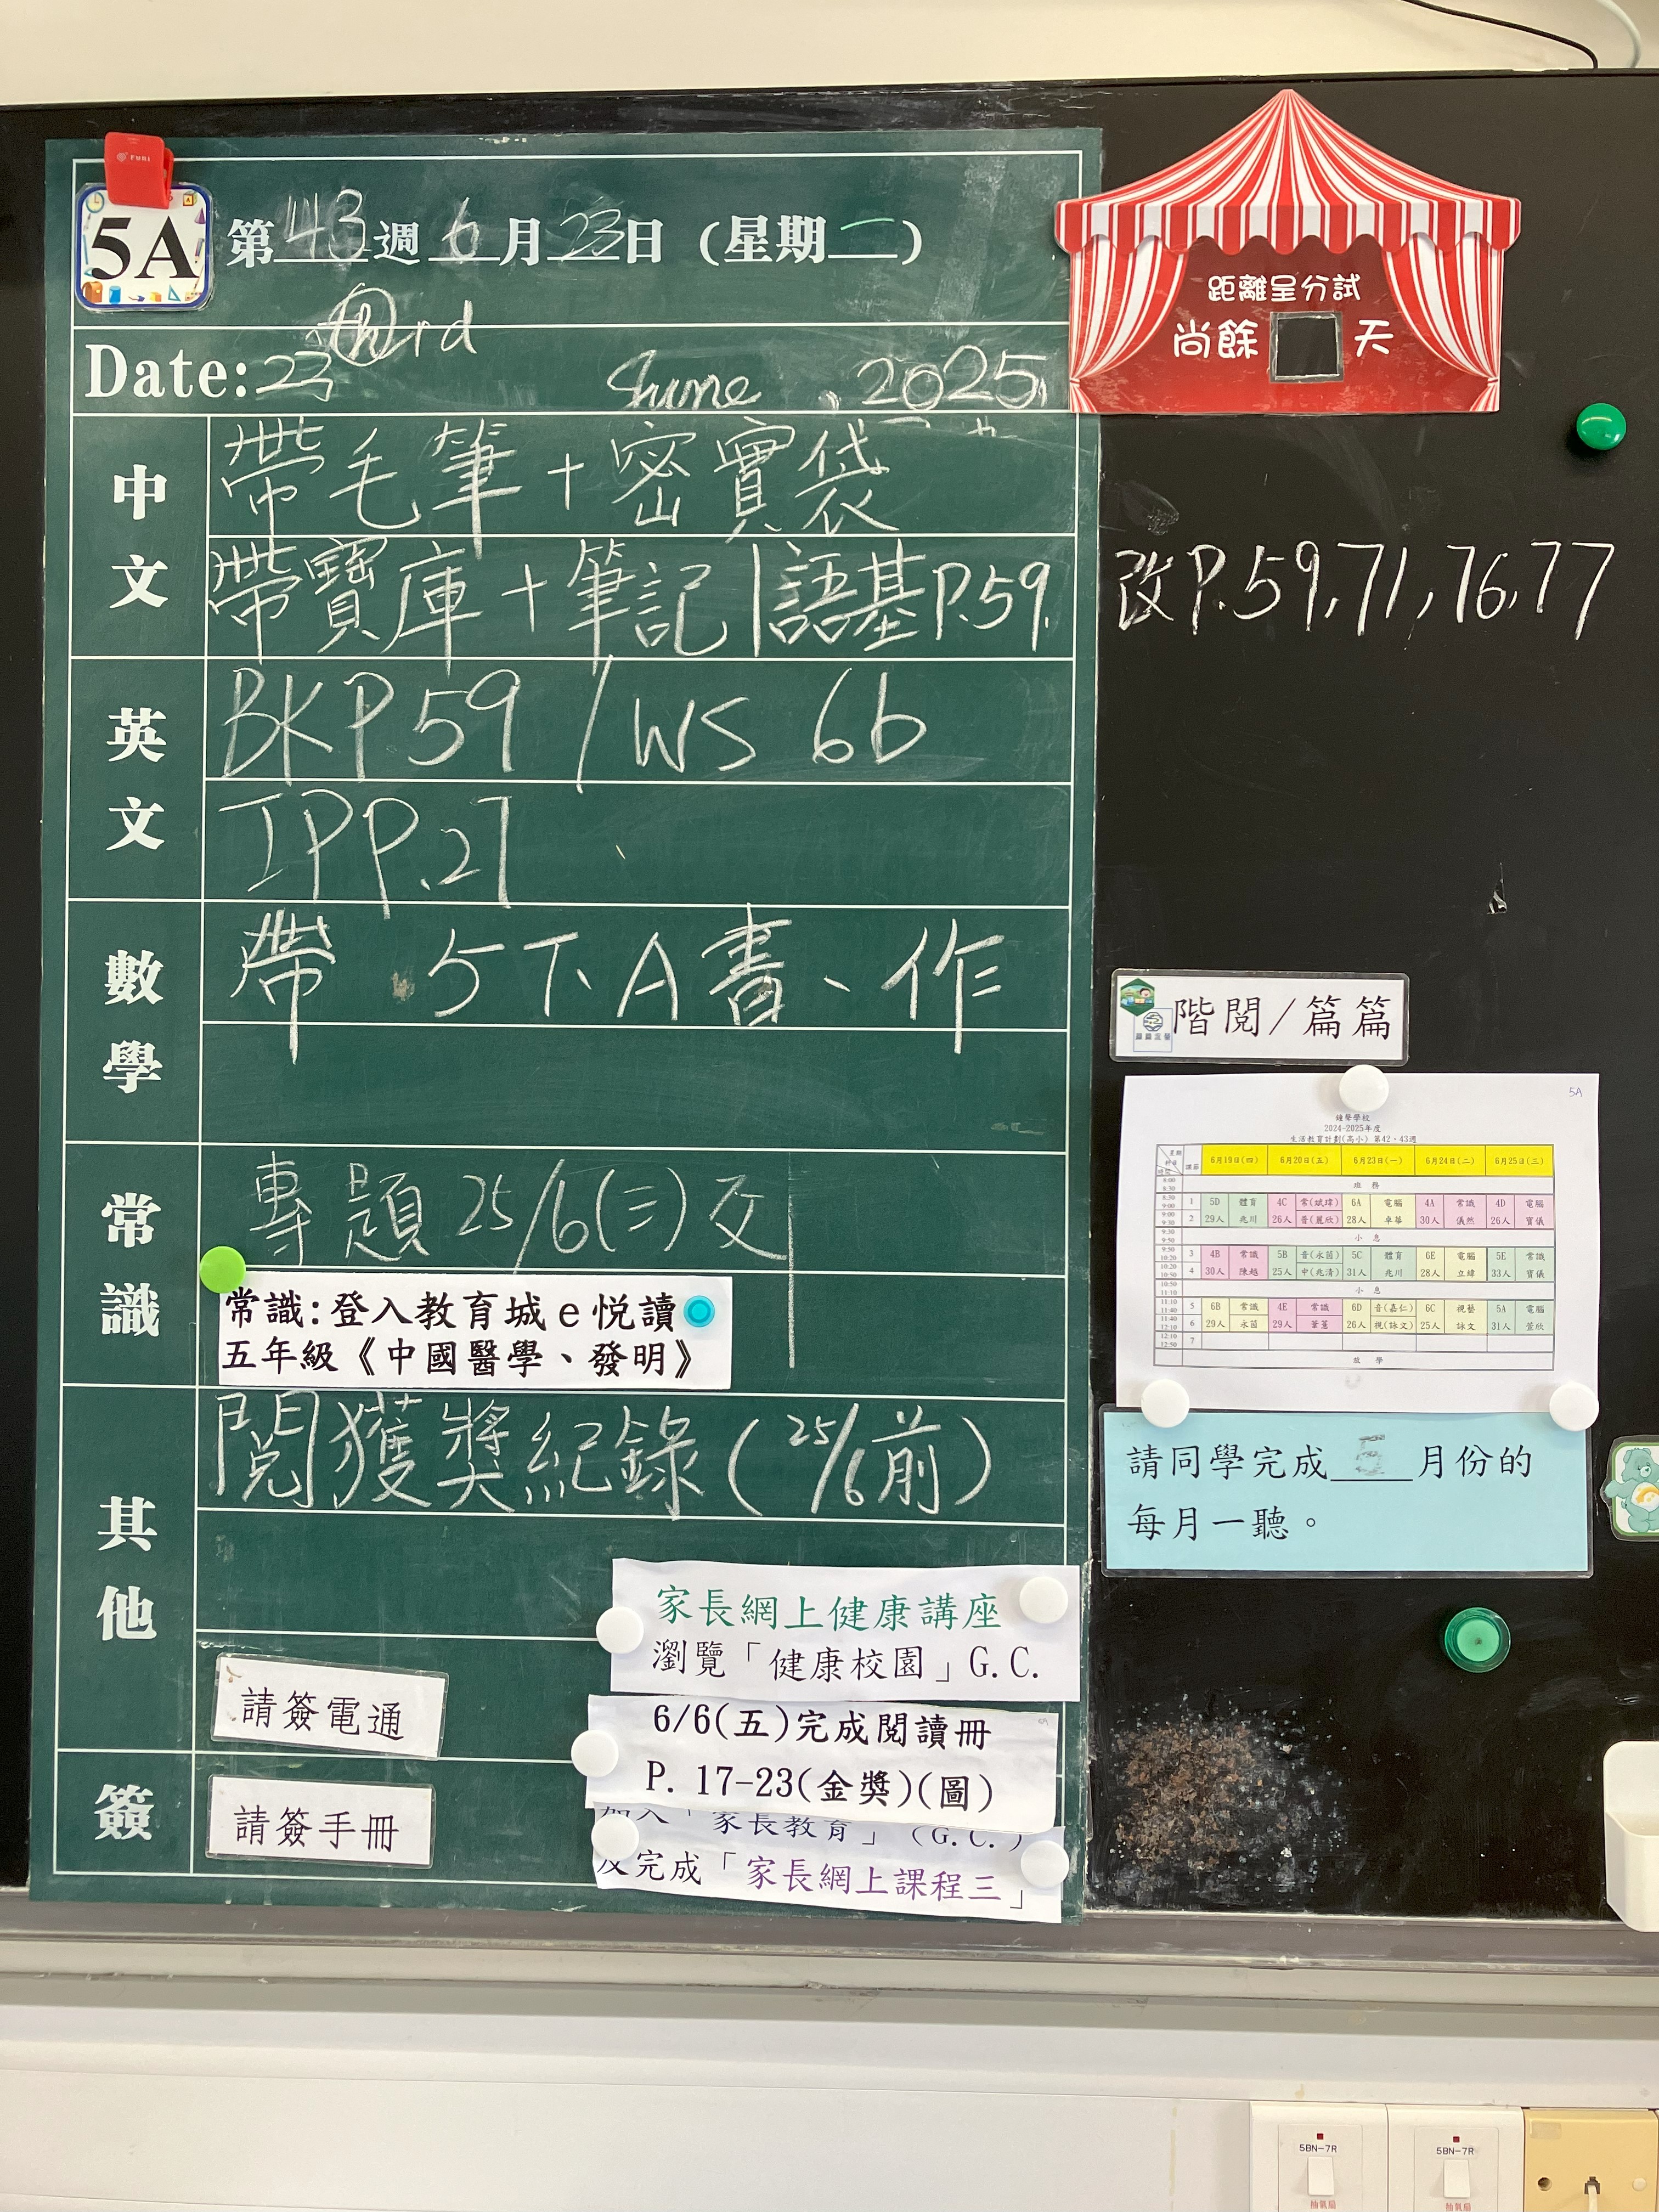 FUNI
5A 第43週6月23日(星期一)
距離呈分試
尚餘 天
third
Date:23 June, 2025
中文
帶毛筆+密實袋
帶寶庫+筆記|語基P.59. 改P.59,71,76,77
英文
BKP59/WS 6b
IPP.27
數學
帶 5下A書、作
常識
專題25/6(三)交
常識:登入教育城e悅讀
五年級《中國醫學、發明》
其他
閱獲獎紀錄(25/6前)
家長網上健康講座
瀏覽「健康校園」G.C.
請簽電通
6/6(五)完成閱讀冊
P. 17-23(金獎)(圖)
簽
請簽手冊
加入「家長教育」(G.C.)
及完成「家長網上課程三」
階閱/篇篇
5A
鐘聲學校
2024-2025年度
生活教育計劃(高小) 第42、43週
星期 節數 6月19日(四) 6月20日(五) 6月23日(一) 6月24日(二) 6月25日(三)
8:00
8:30 班務
8:30
9:00 1 5D 體育 4C 常(斌瑋) 6A 電腦 4A 常識 4D 電腦
9:00
9:30 2 29人 兆川 26人 音(麗欣) 28人 卓華 30人 儀然 26人 寶儀
9:30
9:50 小息
9:50
10:20 3 4B 常識 5B 音(永茵) 5C 體育 6E 電腦 5E 常識
10:20
10:50 4 30人 陳越 25人 中(兆清) 31人 兆川 28人 立緯 33人 寶儀
10:50
11:10 小息
11:10
11:40 5 6B 常識 4E 常識 6D 音(嘉仁) 6C 視藝 5A 電腦
11:40
12:10 6 29人 永茵 29人 筆蕙 26人 視(詠文) 25人 詠文 31人 萱欣
12:10
12:50 7
放學
請同學完成5月份的
每月一聽。
5BN-7R 5BN-7R
抽氣扇 抽氣扇